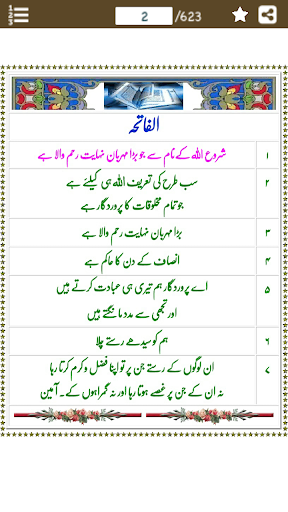 2 /623
الفاتحہ
۱ شروع اللہ کے نام سے جو بڑا مہربان نہایت رحم والا ہے
۲ سب طرح کی تعریف اللہ ہی کیلئے ہے
جو تمام مخلوقات کا پروردگار ہے
۳ بڑا مہربان نہایت رحم والا ہے
۴ انصاف کے دن کا حاکم ہے
۵ اے پروردگار ہم تیری ہی عبادت کرتے ہیں
اور تجھی سے مدد مانگتے ہیں
۶ ہم کو سیدھے رستے چلا
۷ ان لوگوں کے رستے جن پر تو اپنا فضل و کرم کرتا رہا
نہ ان کے جن پر غصے ہوتا رہا اور نہ گمراہوں کے۔ آمین